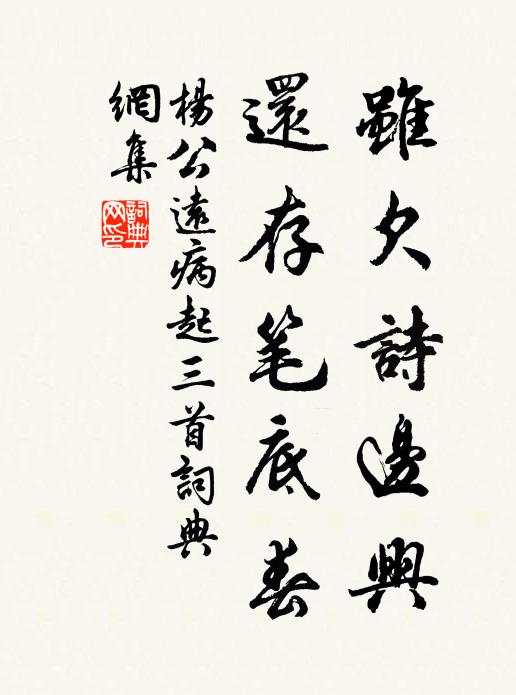 雖欠詩邊興
還存笔底春
楊公遠病起三首詞典
網集
詞典網印